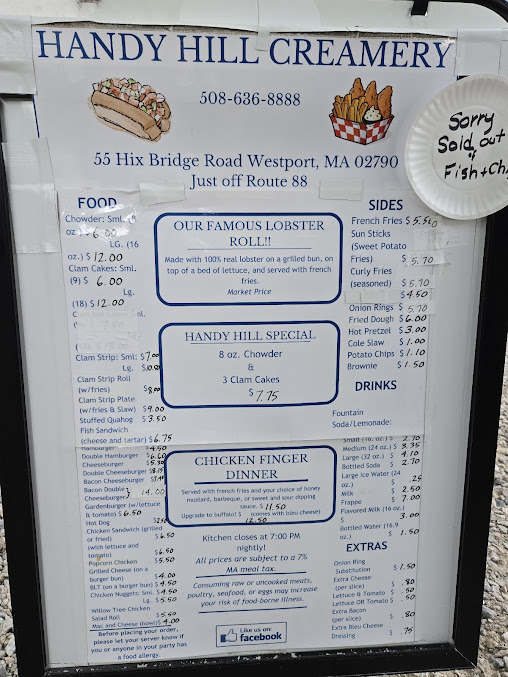 HANDY HILL CREAMERY
508-636-8888
55 Hix Bridge Road Westport, MA 02790
Just off Route 88
Sorry
Sold out
of
Fish + Ch
FOOD
Chowder: Sml. (8
oz.) $ 6.00
LG. (16
oz.) $ 12.00
Clam Cakes: Sml.
(9) $ 6.00
Lg.
(18) $ 12.00
Clam Strip: Sml: $7.00
Lg. $10.50
Clam Strip Roll
(w/fries) $8.00
Clam Strip Plate
(w/fries & Slaw) $9.00
Stuffed Quahog $ 3.50
Fish Sandwich
(cheese and tartar) $6.75
Hamburger $4.50
Double Hamburger $6.60
Cheeseburger
Double Cheeseburger
Bacon Cheeseburger
Bacon Double
Cheeseburger } 14.00
Gardenburger (w/lettuce
& tomato) $ 6.50
Hot Dog
Chicken Sandwich (grilled
or fried) $6.50
(with lettuce and
tomato) $6.50
Popcorn Chicken $5.50
Grilled Cheese (on a
burger bun) $4.00
BLT (on a burger bun) $4.50
Chicken Nuggets: Sml. $4.50
Lg. $5.50
Willow Tree Chicken
Salad Roll $5.50
Mac and Cheese (bowl) $4.00
Before placing your order,
please let your server know if
you or anyone in your party has
a food allergy.
OUR FAMOUS LOBSTER
ROLL!!
Made with 100% real lobster on a grilled bun, on
top of a bed of lettuce, and served with french
fries.
Market Price
HANDY HILL SPECIAL
8 oz. Chowder
&
3 Clam Cakes
$7.75
CHICKEN FINGER
DINNER
Served with french fries and your choice of honey
mustard, barbeque, or sweet and sour dipping
sauce. $ 11.50
Upgrade to buffalo! $ (comes with bleu cheese)
12.50
Kitchen closes at 7:00 PM
nightly!
All prices are subject to a 7%
MA meal tax.
Consuming raw or uncooked meats,
poultry, seafood, or eggs may increase
your risk of food-borne illness.
Like us on:
facebook
SIDES
French Fries $
Sun Sticks
(Sweet Potato
Fries) $ 5.70
Curly Fries
(seasoned) $ 5.70
$ 4.50
Onion Rings $ 5.70
Fried Dough $ 6.00
Hot Pretzel $ 3.00
Cole Slaw $ 1.00
Potato Chips $ 1.10
Brownie $ 1.50
DRINKS
Fountain
Soda/Lemonade:
Small (16. oz.) $ 2.70
Medium (24 oz.) $ 3.35
Large (32 oz.) $ 4.10
Bottled Soda $ 2.70
Large Ice Water (24
oz.) $ .25
Milk $ 2.50
Frappe $ 7.00
Flavored Milk (16 oz.)
$ 3.00
Bottled Water (16.9
oz.) $ 1.50
EXTRAS
Onion Ring
Substitution $ 1.50
Extra Cheese
(per slice) $ .80
Lettuce & Tomato $ .50
Lettuce OR Tomato $ .50
Extra Bacon
(per slice) $ .80
Extra Bleu Cheese
Dressing $ .75